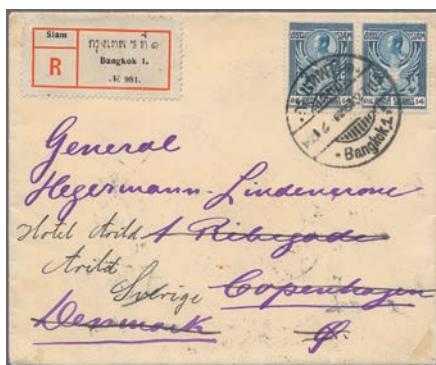 Siam
กรุงเทพฯ ที่ ๑
R
Bangkok 1.
№ 991.
SIAM
SIAM
14
14
Bangkok 1
General
Hegermann-Lindencrone
Hotel Arild 1 Ribegade
Arild
Sverige Copenhagen
Denmark Ø.